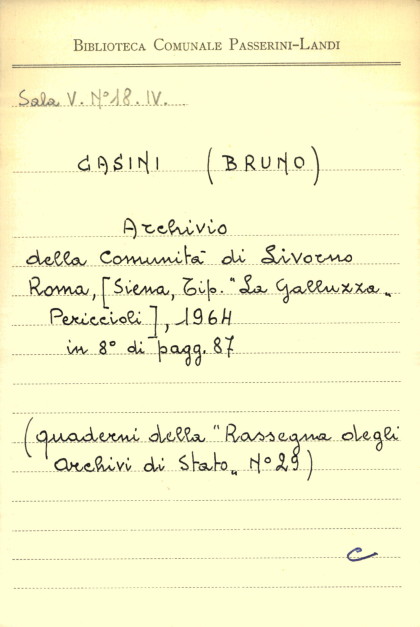 BIBLIOTECA COMUNALE PASSERINI-LANDI
Sala V. N° 18. IV.
CASINI (BRUNO)
Archivio
della Comunità di Livorno
Roma, [Siena, Tip. "La Galluzza„
Periccioli], 1964
in 8° di pagg. 87
(quaderni della "Rassegna degli
Archivi di Stato„ N° 29)
C